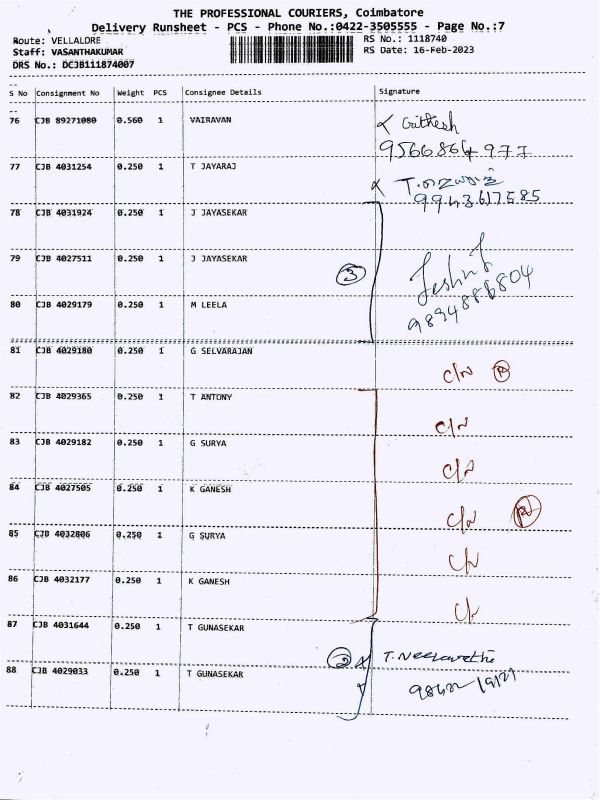 THE PROFESSIONAL COURIERS, Coimbatore
Delivery Runsheet - PCS - Phone No.:0422-3505555 - Page No.:7
Route: VELLALORE
RS No.: 1118740
Staff: VASANTHAKUMAR
RS Date: 16-Feb-2023
DRS No.: DCJB111874007
S No Consignment No Weight PCS Consignee Details Signature
76 CJB 89271080 0.560 1 VAIRAVAN
9566864977
77 CJB 4031254 0.250 1 T JAYARAJ
9943617585
78 CJB 4031924 0.250 1 J JAYASEKAR
79 CJB 4027511 0.250 1 J JAYASEKAR
3
9894886804
80 CJB 4029179 0.250 1 M LEELA
81 CJB 4029180 0.250 1 G SELVARAJAN
C/N
82 CJB 4029365 0.250 1 T ANTONY
C/N
83 CJB 4029182 0.250 1 G SURYA
C/N
84 CJB 4027505 0.250 1 K GANESH
C/N
85 CJB 4032806 0.250 1 G SURYA
C/N
86 CJB 4032177 0.250 1 K GANESH
87 CJB 4031644 0.250 1 T GUNASEKAR
2
88 CJB 4029033 0.250 1 T GUNASEKAR